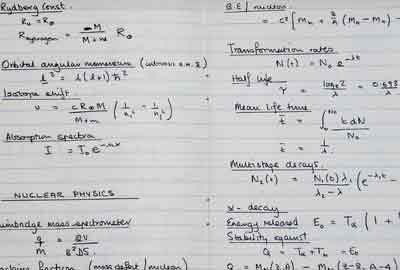 Rydberg Const.
R∞ = R∞
R_Hydrogen = M / (M+m) R∞
Orbital angular momentum
l² = l(l+1)ħ²
Isotope shift.
υ = cR∞M / (M+m) (1/n₁² - 1/n₂²)
Absorption spectra
I = I₀e
NUCLEAR PHYSICS
mass spectrometer
q/M = 2V / B²DS
fraction (mass defect / nucleon)
B.E / nucleon
= c² [Mn + z/A (MH - Mn) -
Transformation rates.
N(t) = N₀ e^-λt
Half life
τ = loge2 / λ = 0.693 / λ
Mean life time
t̄ = ∫₀^N₀ t dN / N₀
t̄ = 1/λ
Multistage decays.
N₂(t) = N₁(0)λ₁ / (λ₂ - λ₁) (e^-λ₁t -
α - decay
Energy released E₀ = Tα (1 +
Stability against
Q = Tα + Tb = E₀
Q = (Z,A) - (Z-2, A-4)